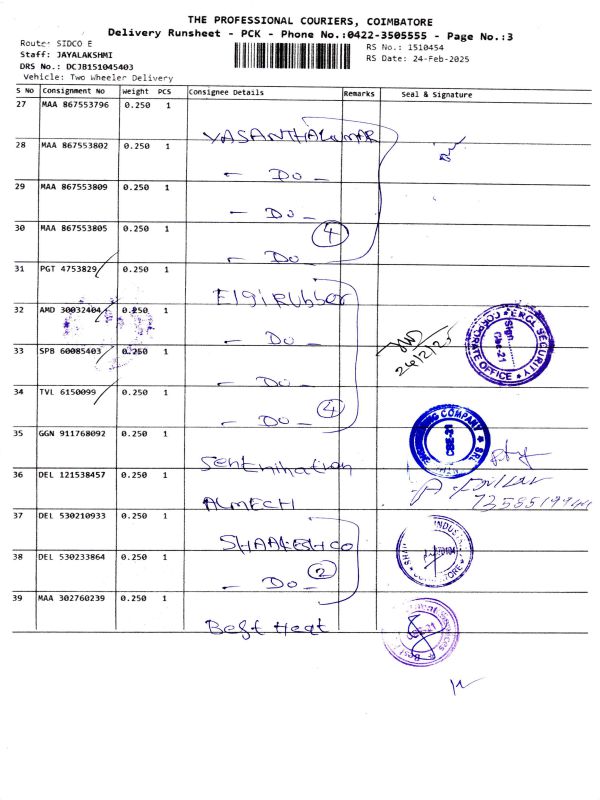 THE PROFESSIONAL COURIERS, COIMBATORE
Delivery Runsheet - PCK - Phone No.:0422-3505555 - Page No.:3
Route: SIDCO E
RS No.: 1510454
Staff: JAYALAKSHMI
RS Date: 24-Feb-2025
DRS No.: DCJB151045403
Vehicle: Two Wheeler Delivery
S No Consignment No Weight PCS Consignee Details Remarks Seal & Signature
27 MAA 867553796 0.250 1 VASANTHAKUMAR
28 MAA 867553802 0.250 1 - Do -
29 MAA 867553809 0.250 1 - Do -
30 MAA 867553805 0.250 1 - Do - 4
31 PGT 4753829 0.250 1 Elgi Rubber
32 AMD 30032404 0.250 1 - Do -
33 SPB 60085403 0.250 1 - Do -
24/2/25
CORPORATE OFFICE * EKCL SECURITY
Sign....
Cbe-21
34 TVL 6150099 0.250 1 - Do - 4
35 GGN 911768092 0.250 1 Sentmihation
COMPANY * SRI
CBE-21
36 DEL 121538457 0.250 1 ALMECH
37 DEL 530210933 0.250 1 SHAALESH CO
INDUS
38 DEL 530233864 0.250 1 - Do - 2
39 MAA 302760239 0.250 1 Best Heat